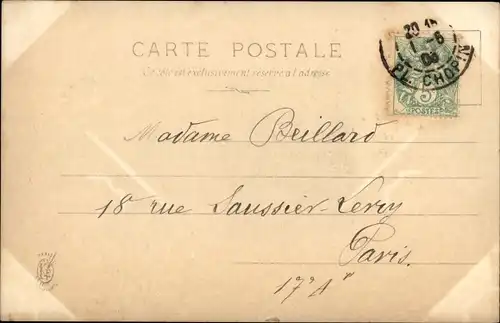 CARTE POSTALE
Ce côté est exclusivement réservé à l'adresse
20 15
1 - 6
04
PL. CHOPIN
5
POSTES
Madame Beillard
18 rue Saussier-Leroy
Paris.
17e Art